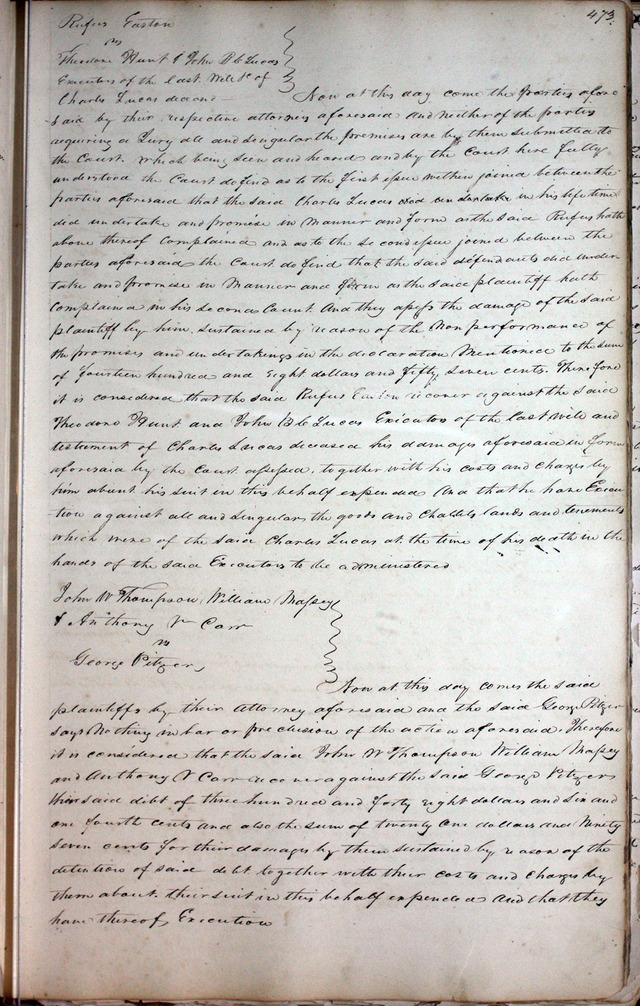 473
Rufus Easton
vs
Theodore Hunt & John B C Lucas
Executors of the last Will &c of
Charles Lucas deceasd
Now at this day come the parties afore
said by their respective attorneys aforesaid and neither of the parties
requiring a Jury all and singular the premises are by them submitted to
the Court. which being seen and heard and by the Court here fully
understood the Court do find as to the first issue within joined between the
parties aforesaid that the said Charles Lucas did undertake in his life time
did undertake and promise in Manner and form as the said Rufus hath
above thereof Complained and as to the second issue joined between the
parties aforesaid the Court do find that the said defendants did under
take and promise in Manner and form as the said plaintiff hath
Complained in his second Count. And they assess the damage of the said
plaintiff by him sustained by reason of the Non performance of
the promises and undertakings in the declaration Mentioned to the sum
of fourteen hundred and Eight dollars and fifty seven cents. Therefore
it is considered that the said Rufus Easton recover against the said
Theodore Hunt and John B C Lucas Executors of the last Will and
testament of Charles Lucas deceased his damages aforesaid in form
aforesaid by the Court assessed, together with his costs and charges by
him about his suit in this behalf expended And that he have Execu
tion against all and singular the goods and Chattels lands and tenements
which were of the said Charles Lucas at the time of his death in the
hands of the said Executors to be administered
John W Thompson, William Massey
& Anthony V Carr
vs
George Pitzer
Now at this day comes the said
plaintiffs by their Attorney aforesaid and the said George Pitzer
says Nothing in bar or preclusion of the action aforesaid. Therefore
it is considered that the said John W Thompson William Massey
and Anthony V Carr recover against the said George Pitzer
their said debt of three hundred and forty eight dollars and six and
one fourth cents and also the sum of twenty one dollars and Ninety
seven cents for their damages by them sustained by reason of the
detention of said debt together with their costs and charges by
them about their suit in this behalf expended And that they
have thereof Execution